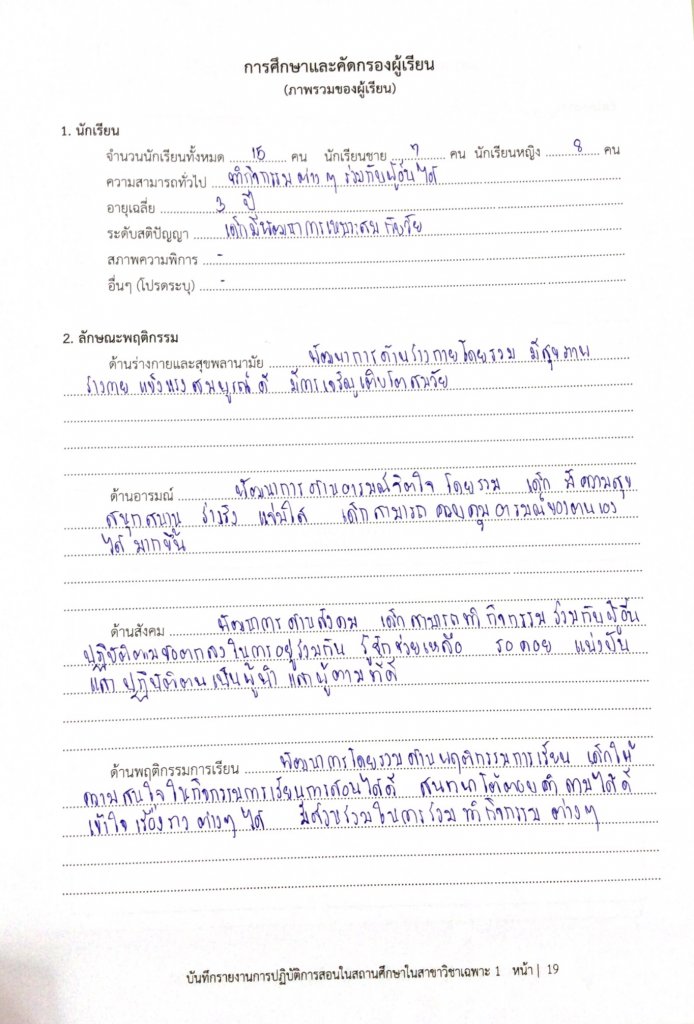 การศึกษาและคัดกรองผู้เรียน
(ภาพรวมของผู้เรียน)
1. นักเรียน
จำนวนนักเรียนทั้งหมด 15 คน นักเรียนชาย 7 คน นักเรียนหญิง 8 คน
ความสามารถทั่วไป ทำกิจกรรมต่าง ๆ ร่วมกับผู้อื่นได้
อายุเฉลี่ย 3 ปี
ระดับสติปัญญา เด็กมีพัฒนาการเหมาะสมกับวัย
สภาพความพิการ -
อื่นๆ (โปรดระบุ) -
2. ลักษณะพฤติกรรม
ด้านร่างกายและสุขพลานามัย พัฒนาการด้านร่างกายโดยรวม มีสุขภาพ
ร่างกาย แข็งแรงสมบูรณ์ดี มีการเจริญเติบโตสมวัย
ด้านอารมณ์ พัฒนาการด้านอารมณ์จิตใจ โดยรวม เด็ก มีความสุข
สนุกสนาน ร่าเริง แจ่มใส เด็กสามารถควบคุมอารมณ์ของตนเอง
ได้มากขึ้น
ด้านสังคม พัฒนาการด้านสังคม เด็กสามารถทำกิจกรรมร่วมกับผู้อื่น
ปฏิบัติตามข้อตกลงในการอยู่ร่วมกัน รู้จักช่วยเหลือ รอคอย แบ่งปัน
และปฏิบัติตนเป็นผู้นำและผู้ตามที่ดี
ด้านพฤติกรรมการเรียน พัฒนาการโดยรวมด้านพฤติกรรมการเรียน เด็กให้
ความสนใจในกิจกรรมการเรียนการสอนได้ดี สนทนาโต้ตอบคำถามได้ดี
เข้าใจเรื่องราวต่างๆ ได้ มีส่วนร่วมในการร่วมทำกิจกรรมต่างๆ
บันทึกรายงานการปฏิบัติการสอนในสถานศึกษาในสาขาวิชาเฉพาะ 1 หน้า | 19